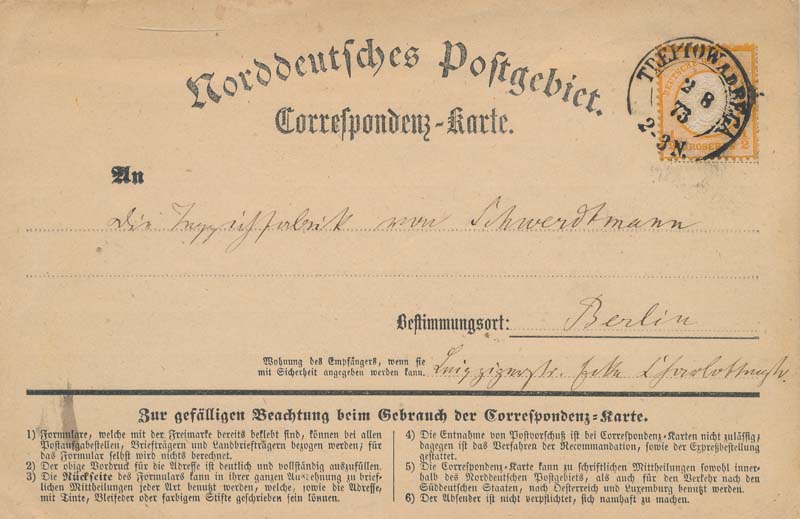 Norddeutsches Postgebiet.
Correspondenz-Karte.
TREPTOW A.D. REGA
2 8
73
2-3 N.
DEUTSCHE
1/2 GROSCHEN 1/2
An
Die Teppichfabrik von Schwerdtmann
Bestimmungsort: Berlin
Wohnung des Empfängers, wenn sie
mit Sicherheit angegeben werden kann. Leipzigerstr. Ecke Charlottenstr.
Zur gefälligen Beachtung beim Gebrauch der Correspondenz-Karte.
1) Formulare, welche mit der Freimarke bereits beklebt sind, können bei allen
Postaufgabestellen, Briefträgern und Landbriefträgern bezogen werden; für
das Formular selbst wird nichts berechnet.
2) Der obige Vordruck für die Adresse ist deutlich und vollständig auszufüllen.
3) Die Rückseite des Formulars kann in ihrer ganzen Ausdehnung zu brief-
lichen Mittheilungen jeder Art benutzt werden, welche, sowie die Adresse,
mit Tinte, Bleifeder oder farbigem Stifte geschrieben sein können.
4) Die Entnahme von Postvorschuß ist bei Correspondenz-Karten nicht zulässig;
dagegen ist das Verfahren der Recommandation, sowie der Expreßbestellung
gestattet.
5) Die Correspondenz-Karte kann zu schriftlichen Mittheilungen sowohl inner-
halb des Norddeutschen Postgebiets, als auch für den Verkehr nach den
Süddeutschen Staaten, nach Oesterreich und Luxemburg benutzt werden.
6) Der Absender ist nicht verpflichtet, sich namhaft zu machen.